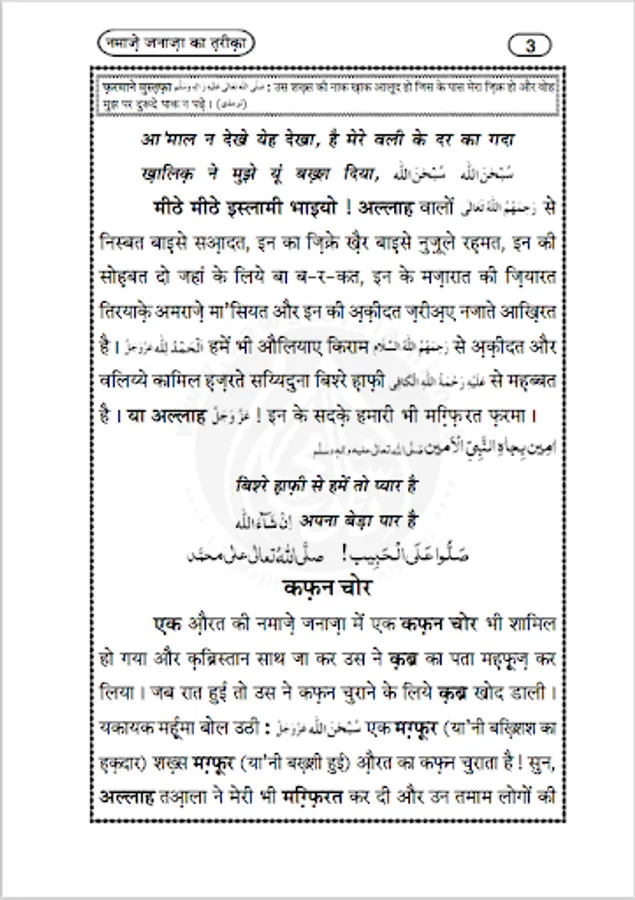 नमाज़े जनाज़ा का त़रीक़ा
3
फ़रमाने मुस्त़फ़ा صلى الله تعالى عليه واله وسلم : उस शख़्स की नाक ख़ाक आलूद हो जिस के पास मेरा ज़िक्र हो और वोह
मुझ पर दुरूदे पाक न पढ़े। (ترمذی)
आ'माल न देखे येह देखा, है मेरे वली के दर का गदा
ख़ालिक़ ने मुझे यूं बख़्श दिया, سُبْحٰنَ اللّٰه سُبْحٰنَ اللّٰه
मीठे मीठे इस्लामी भाइयो ! अल्लाह वालों رَحِمَهُمُ اللّٰهُ تَعَالٰى से
निस्बत बाइसे सआ़दत, इन का ज़िक्रे ख़ैर बाइसे नुज़ूले रह़मत, इन की
सोह़बत दो जहां के लिये बा ब-र-कत, इन के मज़ारात की ज़ियारत
तिरयाक़े अमराज़े मा'सियत और इन की अ़क़ीदत ज़रीअ़ए नजाते आख़िरत
है। اَلْحَمْدُ لِلّٰه عَزَّوَجَلَّ हमें भी औलियाए किराम رَحِمَهُمُ اللّٰهُ السَّلَام से अ़क़ीदत और
वलिय्ये कामिल ह़ज़रते सय्यिदुना बिश्रे ह़ाफ़ी عَلَيْهِ رَحْمَةُ اللّٰهِ الْكَافِى से मह़ब्बत
है। या अल्लाह عَزَّوَجَلَّ ! इन के सदक़े हमारी भी मग़्फ़िरत फ़रमा।
امِين بِجَاهِ النَّبِيِّ الْاَمين صلى الله تعالى عليه واله وسلم
बिश्रे ह़ाफ़ी से हमें तो प्यार है
اِنْ شَآءَ اللّٰه अपना बेड़ा पार है
صَلُّوا عَلَى الْحَبِيب! صلَّى اللهُ تعالٰى على محمَّد
कफ़न चोर
एक औ़रत की नमाज़े जनाज़ा में एक कफ़न चोर भी शामिल
हो गया और क़ब्रिस्तान साथ जा कर उस ने क़ब्र का पता मह़फ़ूज़ कर
लिया। जब रात हुई तो उस ने कफ़न चुराने के लिये क़ब्र खोद डाली।
यकायक मर्ह़ूमा बोल उठी : سُبْحٰنَ اللّٰه عَزَّوَجَلَّ एक मग़्फ़ूर (या'नी बख़्शिश का
ह़क़दार) शख़्स मग़्फ़ूर (या'नी बख़्शी हुई) औ़रत का कफ़न चुराता है ! सुन,
अल्लाह तआ़ला ने मेरी भी मग़्फ़िरत कर दी और उन तमाम लोगों की